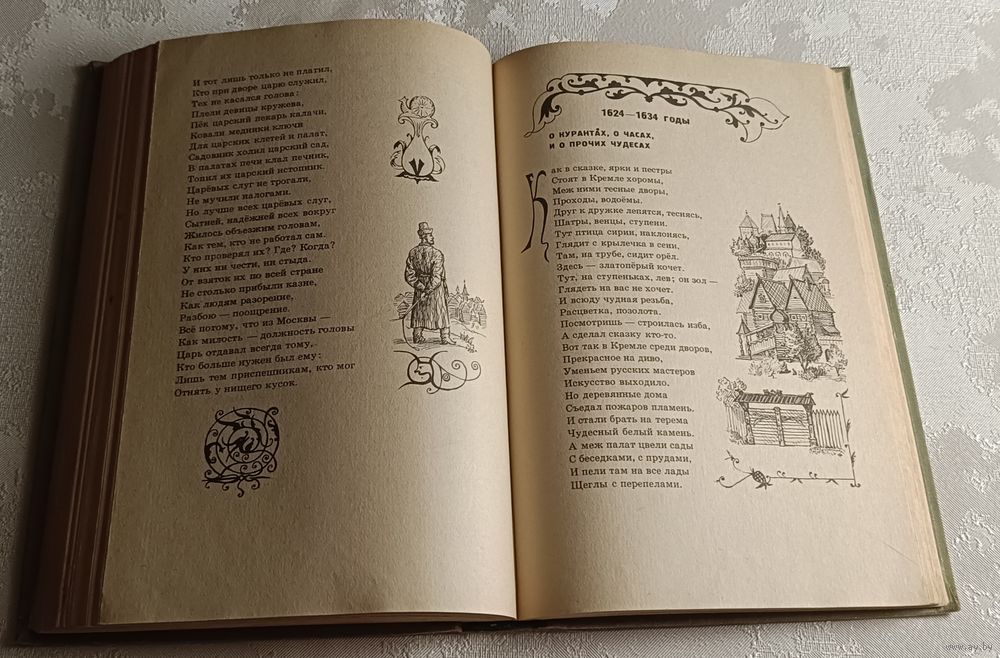 И тот лишь только не платил,
Кто при дворе царю служил,
Тех не касался голова:
Плели девицы кружева,
Пёк царский пекарь калачи,
Ковали медники ключи
Для царских клетей и палат,
Садовник холил царский сад,
В палатах печи клал печник,
Топил их царский истопник.
Царёвых слуг не трогали,
Не мучили налогами.
Но лучше всех царёвых слуг,
Сытней, надёжней всех вокруг
Жилось объезжим головам,
Как тем, кто не работал сам.
Кто проверял их? Где? Когда?
У них ни чести, ни стыда.
От взяток их по всей стране
Не столько прибыли казне,
Как людям разорение,
Разбою — поощрение.
Всё потому, что из Москвы —
Как милость — должность головы
Царь отдавал всегда тому,
Кто больше нужен был ему:
Лишь тем приспешникам, кто мог
Отнять у нищего кусок.
1624—1634 ГОДЫ
О КУРАНТАХ, О ЧАСАХ,
И О ПРОЧИХ ЧУДЕСАХ
Как в сказке, ярки и пестры
Стоят в Кремле хоромы,
Меж ними тесные дворы,
Проходы, водоёмы.
Друг к дружке лепятся, теснясь,
Шатры, венцы, ступени.
Тут птица сирин, наклонясь,
Глядит с крылечка в сени,
Там, на трубе, сидит орёл.
Здесь — златопёрый кочет.
Тут, на ступеньках, лев; он зол —
Глядеть на вас не хочет.
И всюду чудная резьба,
Расцветка, позолота.
Посмотришь — строилась изба,
А сделал сказку кто-то.
Вот так в Кремле среди дворов,
Прекрасное на диво,
Уменьем русских мастеров
Искусство выходило.
Но деревянные дома
Съедал пожаров пламень.
И стали брать на терема
Чудесный белый камень.
А меж палат цвели сады
С беседками, с прудами,
И пели там на все лады
Щеглы с перепелами.
www.ay.by